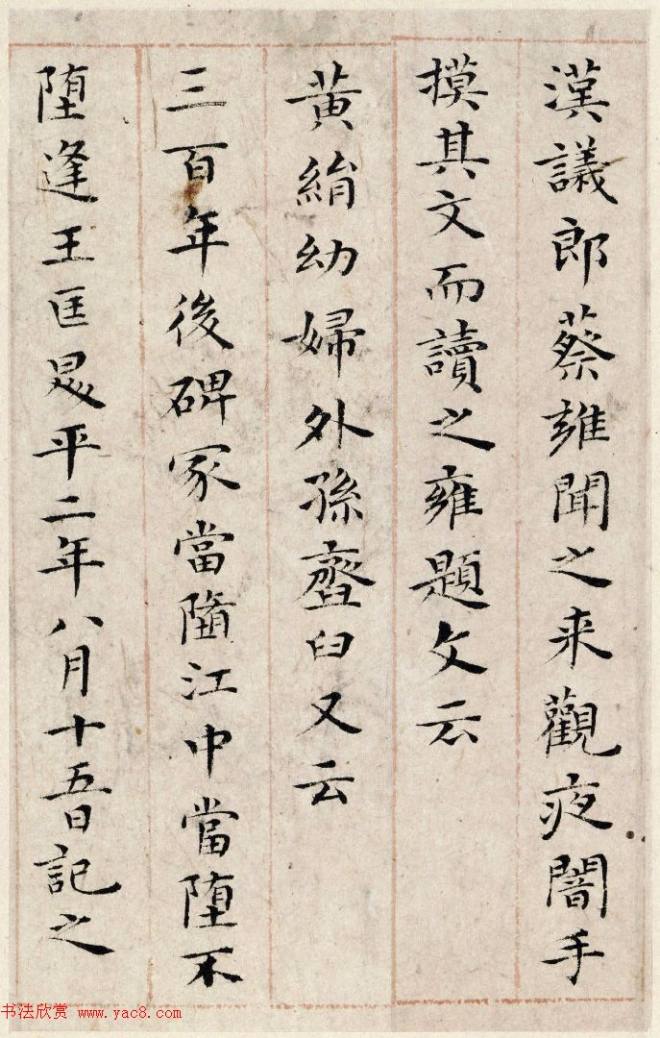 漢議郎蔡雍聞之来觀夜闇手
摸其文而讀之雍題文云
黃絹幼婦外孫韲臼又云
三百年後碑冢當隨江中當墮不
墮逢王匡昇平二年八月十五日記之
书法欣赏 www.yac8.com